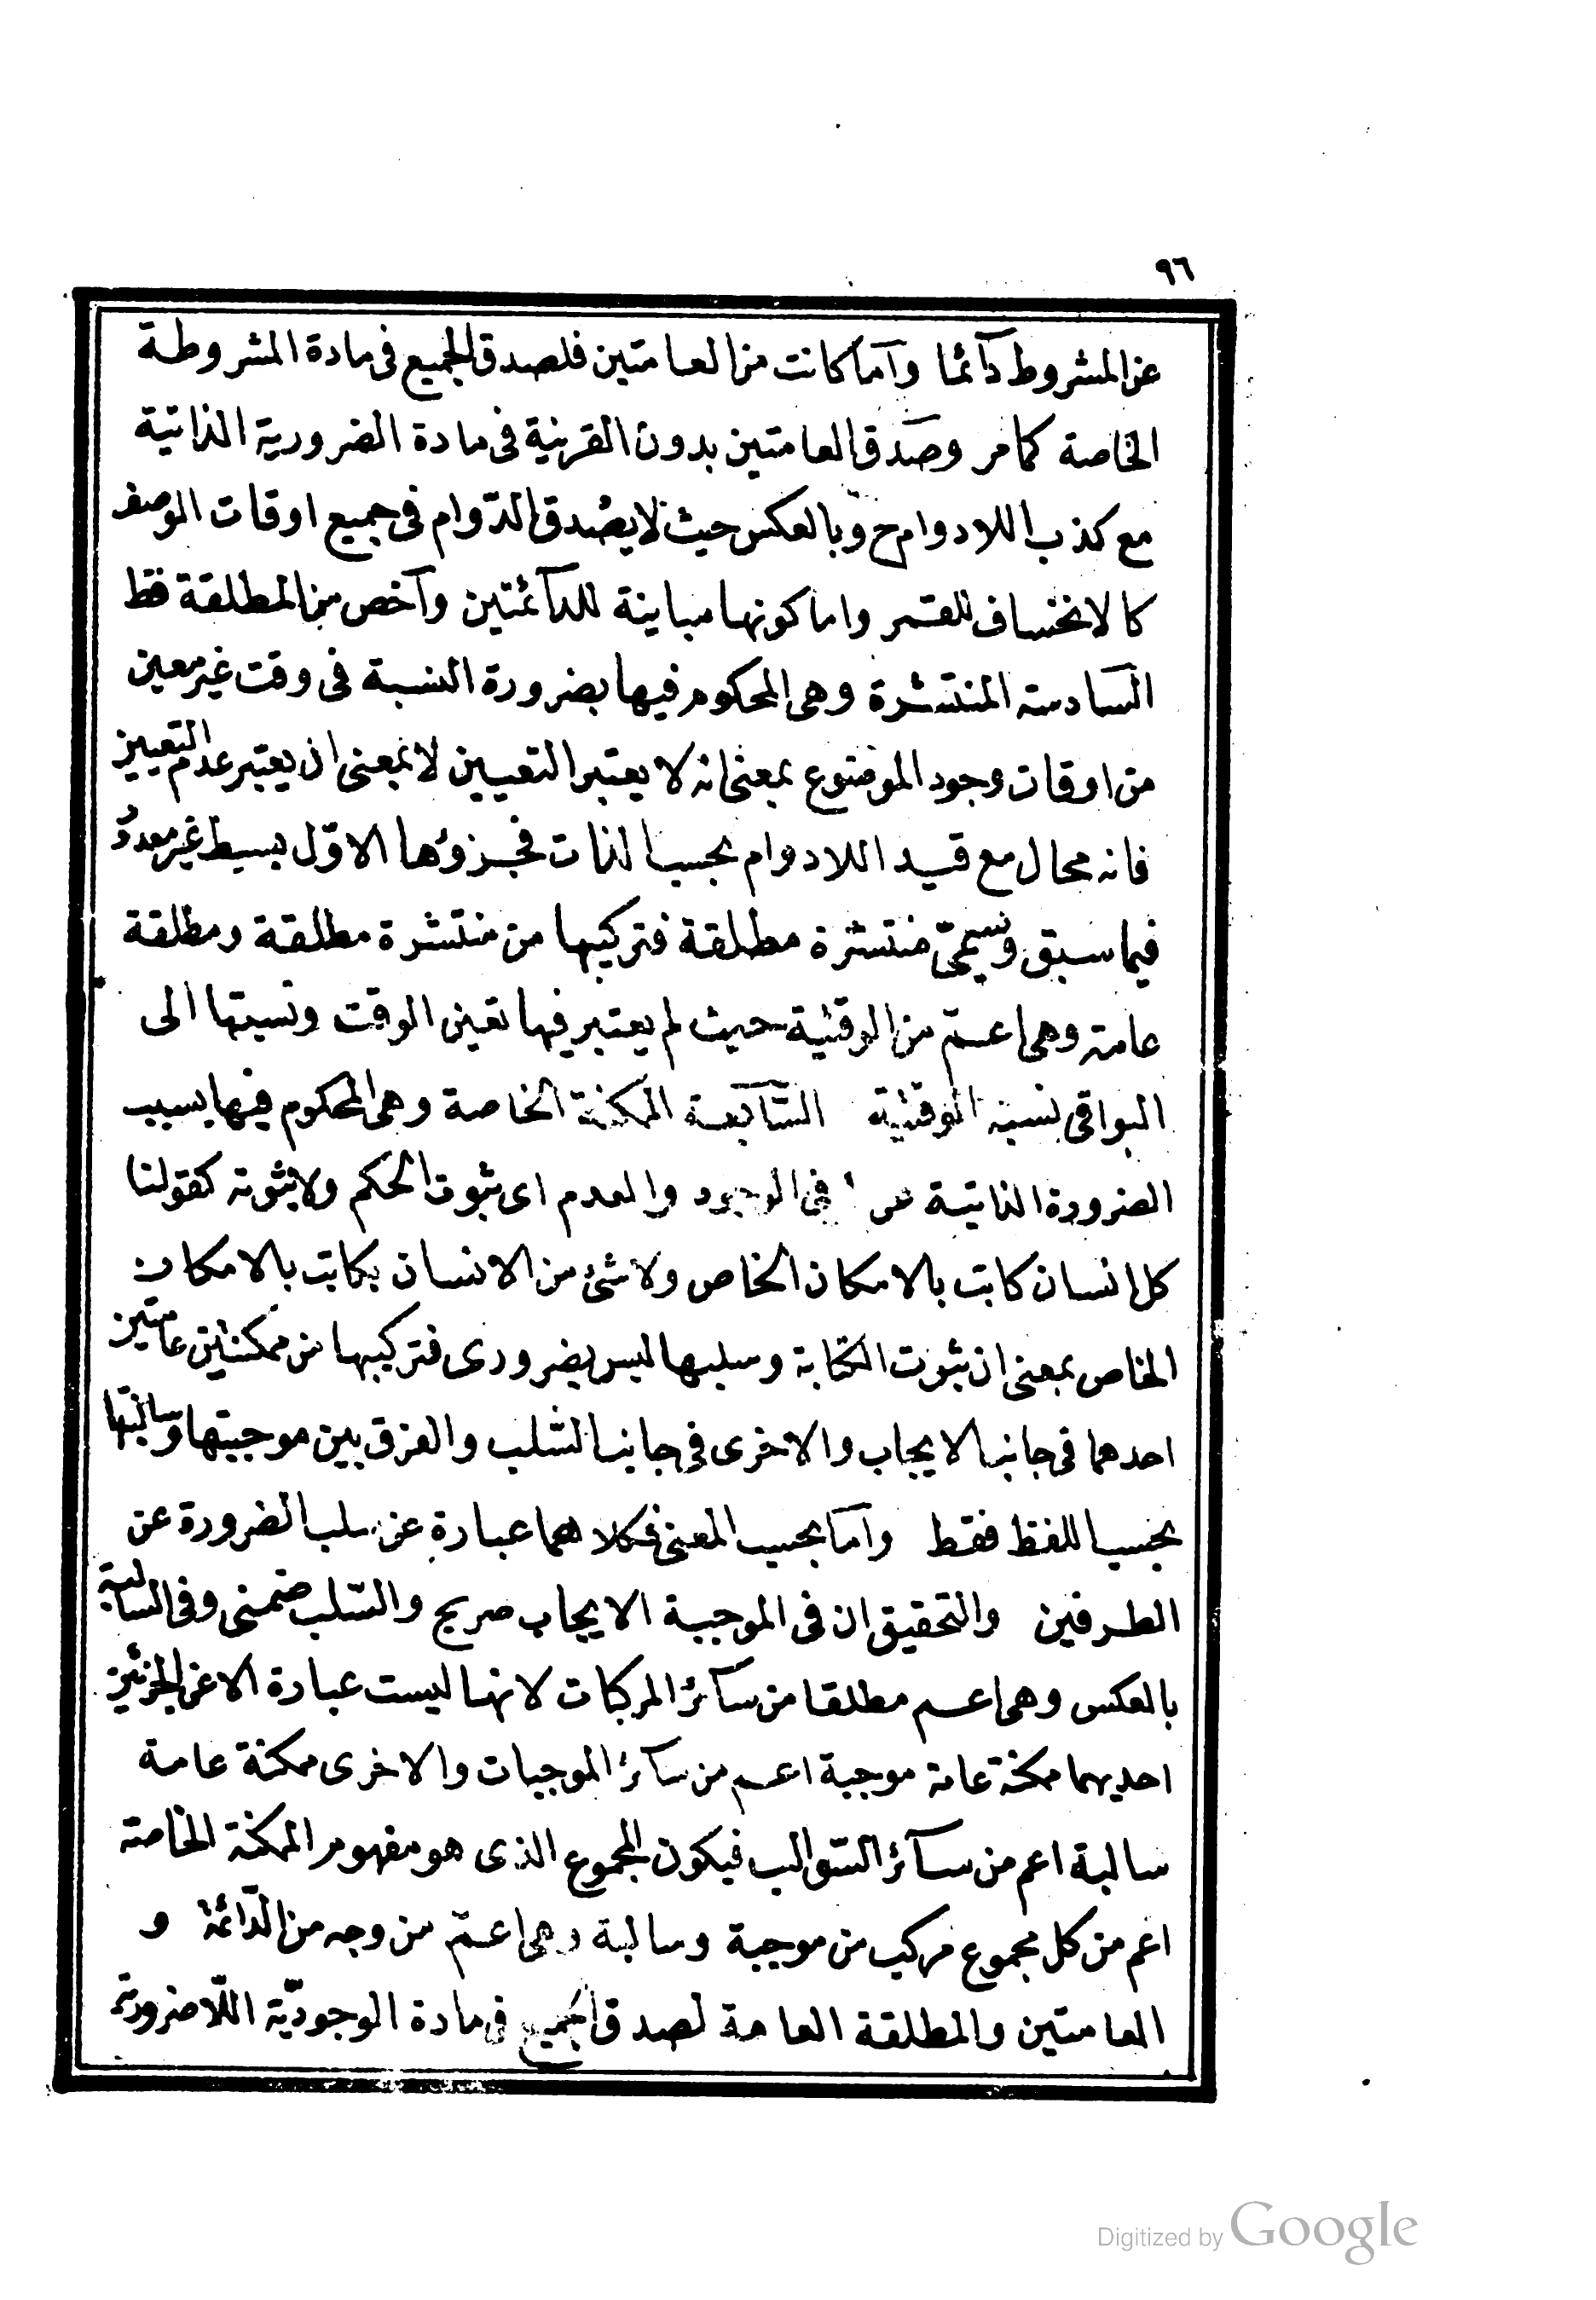 ٩٦
عن المشروط دآئما وآما كانت من العامتين فلصدق الجميع فى مادة المشروطة
الخاصة كمامر وصدق العامتين بدون القرنية فى مادة الضرورية الذاتية
مع كذب اللادوام ح وبالعكس حيث لايصدق الدّوام فى جميع اوقات الوصف
كالانخساف للقمر واما كونها مباينة للدآئمتين وآخص من المطلقة فقط
السادسة المنتشرة وهى المحكوم فيها بضرورة النسبة فى وقت غير معين
من اوقات وجود الموضوع بمعنى انه لا يعتبر التعيين لا بمعنى ان يعتبر عدم التعيين
فانه محال مع قيد اللادوام بحسب الذات فجزؤها الاوّل بسيط غير معدود
فيما سبق وتسمىّ منتشرة مطلقة فتركيبها من منتشرة مطلقة ومطلقة
عامة وهى اعمّ من الوقتية حيث لم يعتبر فيها تعين الوقت ونسبتها الى
البواقى نسبة الوقتية السّابعة الممكنة الخاصة وهى المحكوم فيها بسلب
الضرورة الذاتية عن فى الوجود والعدم اى ثبوت الحكم ولا ثبوته كقولنا
كل انسان كاتب بالامكان الخاص ولا شئ من الانسان بكاتب بالامكان
الخاص بمعنى ان ثبوت الكتابة وسلبها ليس بضرورى فتركيبها من ممكنتين عامتين
احدهما فى جانب الايجاب والاخرى فى جانب السّلب والفرق بين موجبتها وسالبتها
بحسب اللفظ فقط وآما بحسب المعنى فكلاهما عبارة عن سلب الضرورة عن
الطرفين والتحقيق ان فى الموجبة الايجاب صريح والسّلب ضمنى وفى السالبة
بالعكس وهى اعم مطلقا من سآئر المركبات لانها ليست عبارة الا عن الجزئين
احديهما ممكنة عامة موجبة اعم من سآئر الموجبات والاخرى ممكنة عامة
سالبة اعم من سآئر السّوالب فيكون المجموع الذى هو مفهوم الممكنة الخاصة
اعم من كل مجموع مركب من موجبة وسالبة وهى اعمّ من وجه من الدّائمة و
العامتين والمطلقة العامة لصدق الجميع فى مادة الوجوديّة اللّاضرورية
Digitized by Google